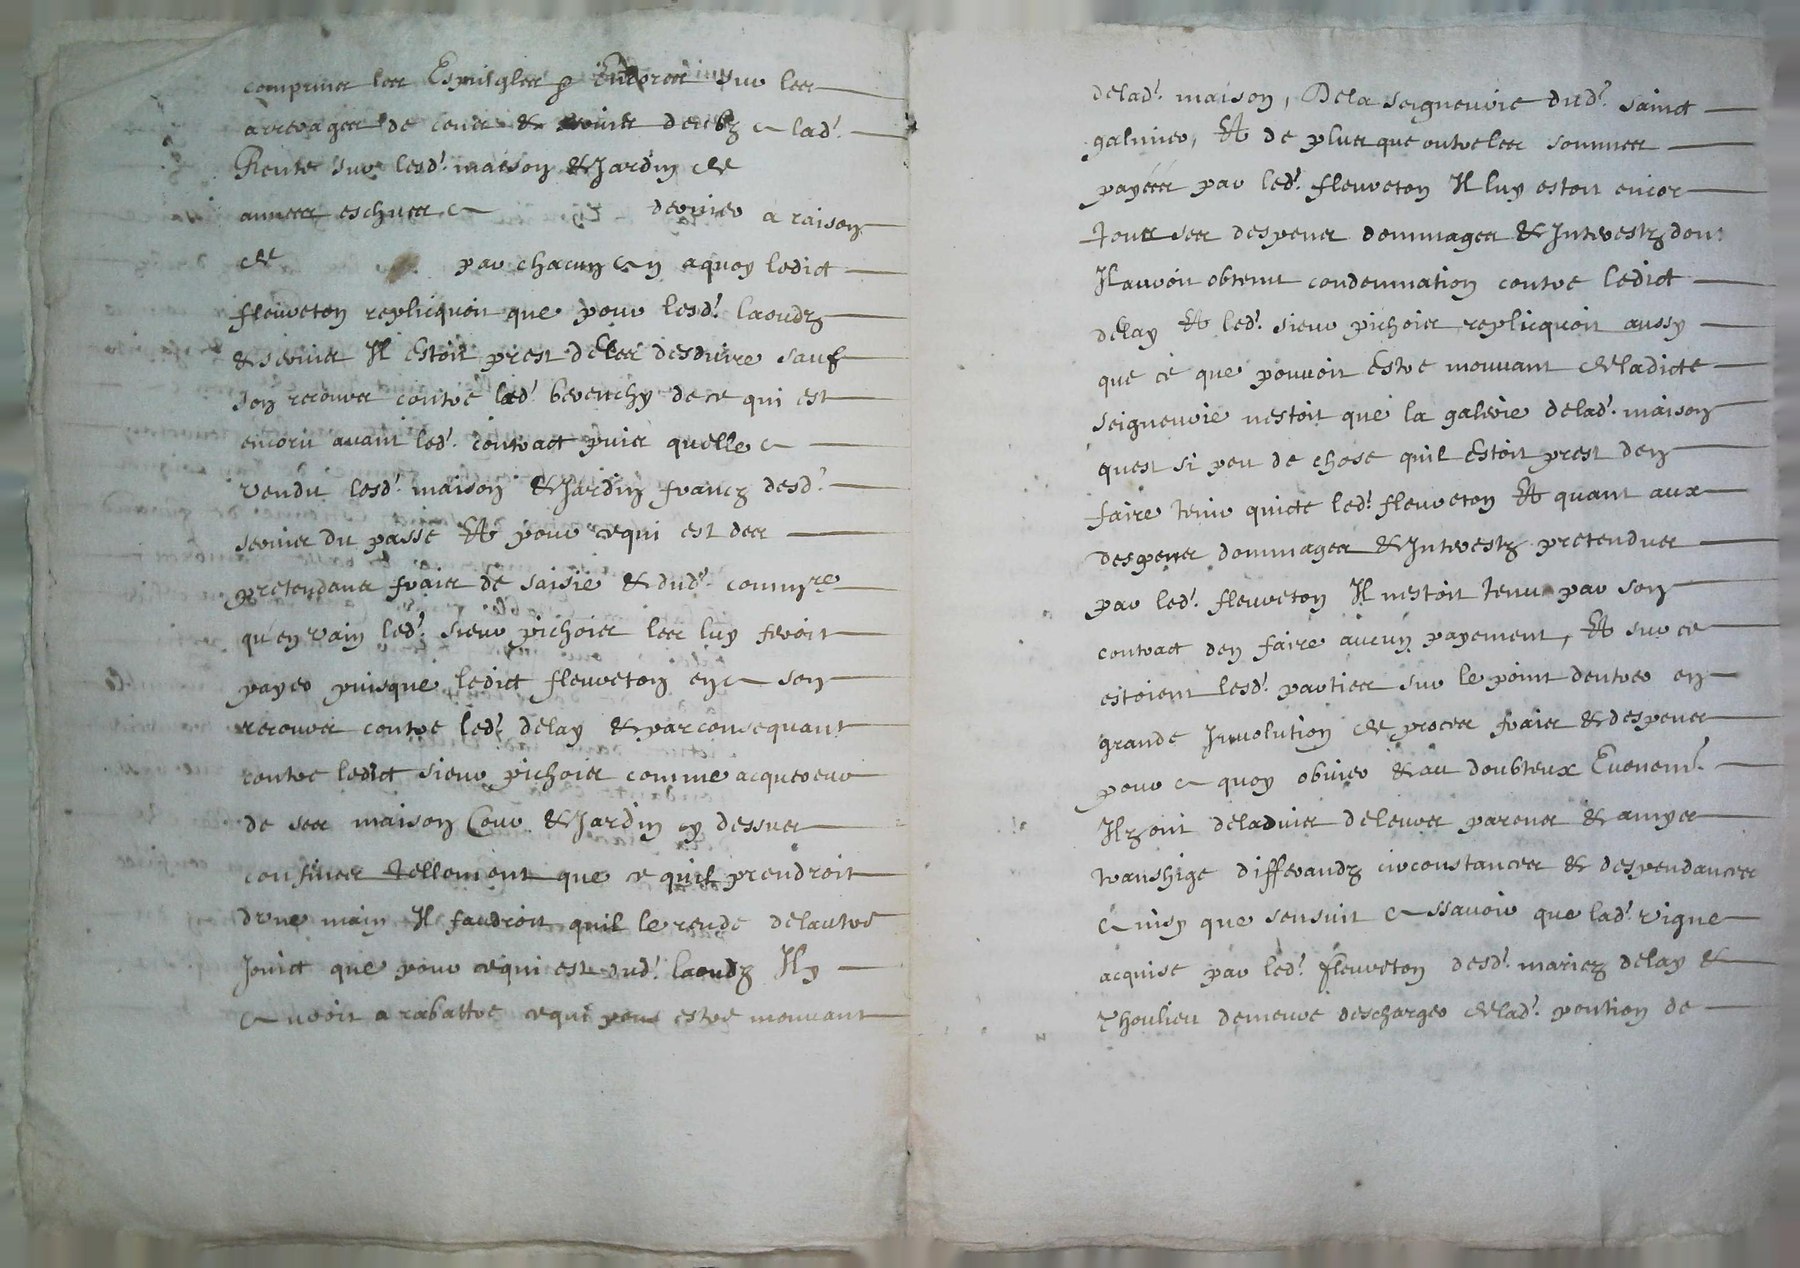 comprines les Espingles & Encores sur les
arrerages de cens & servis deubz a lad.
Rente sur lesd. maison & Jardin de
annees escheues a dernier a raison
de par chacun an a quoy ledict
fleureton replicquoit que pour lesd. laoudz
& servis Il Estoit prest de les desduire sauf
son recours contre lad. bevenchy de ce qui est
encoru avant led. contract puis quelle a
vendu lesd. maison & Jardin francz desd.
servis du passé Et pour cequi est des
pretendans fraies de saisie & dud. commre
qu'en vain led. sieur pichois les luy feroit
payer puisque ledict fleureton en a son
recours contre led. delay & parconsequant
contre ledict sieur pichois comme acquereur
de ses maison Cour & Jardin cy dessus
confines tellement que ce quil prendroit
d'une main Il faudroit quil le rende delautre
Joinct que pour cequi est dud. laoudz Il y
avoit a rabattre cequi peut estre mouvant
delad. maison, De la seigneurie dud. sainct
galmier, Et de plus que outre les sommes
payées par led. fleureton Il luy estoit encor
tous ses despens dommages & Interestz dont
Il avoit obtenu condemnation contre ledict
delay Et led. sieur pichois replicquoit aussy
que ce que pouvoit Estre mouvant de ladicte
seigneurie nestoit que la galerie delad. maison
quest si peu de chose quil Estoit prest den
faire tenir quicte led. fleureton Et quant aux
despens dommages & Interestz pretendus
par led. fleureton Il nestoit tenu par son
contract den faire aucun payement, Et sur ce
estoient lesd. parties sur le point dentrer en
grande Involution de proces fraies & despens
pour a quoy obvier & au doubteux Evenemt.
Ilz ont deladvis de leurs parens & amys
transhige differandz circonstances & despendances
Ainsy que sensuit assavoir que lad. vigne
acquise par led. fleureton desd. mariez delay &
Thoulieu demeure descharger de lad. pention de